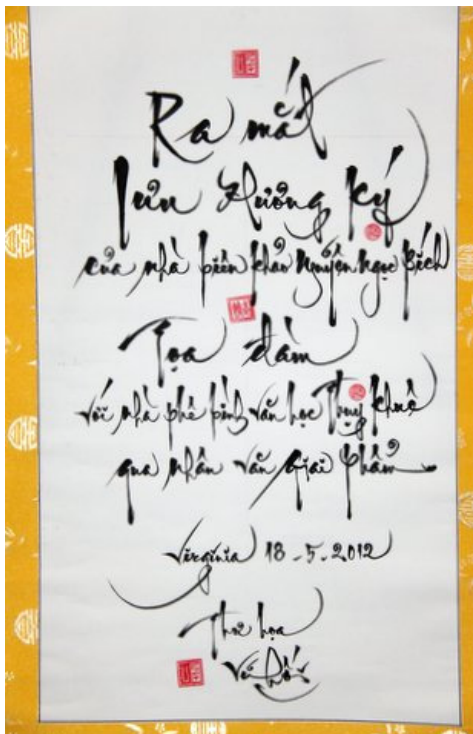 Ra mắt
lưu Hương ký
của nhà biên khảo Nguyễn Ngọc Bích
Tọa đàm
với nhà phê bình văn học Thụy Khuê
qua nhân văn giai phẩm
Virginia 18-5-2012
Thư họa
Vũ Hối